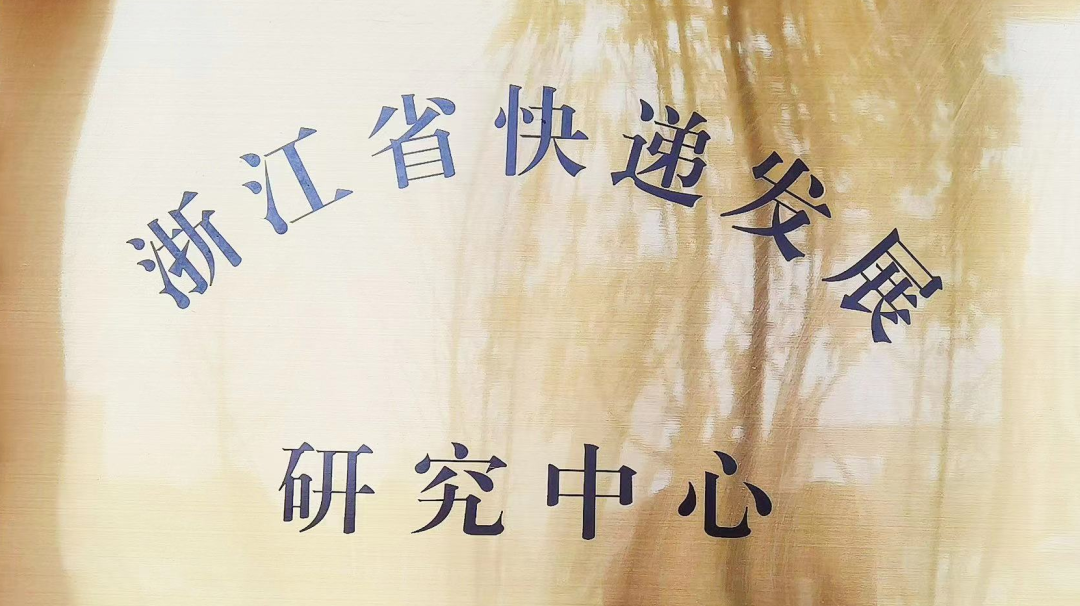 浙江省快递发展
研究中心